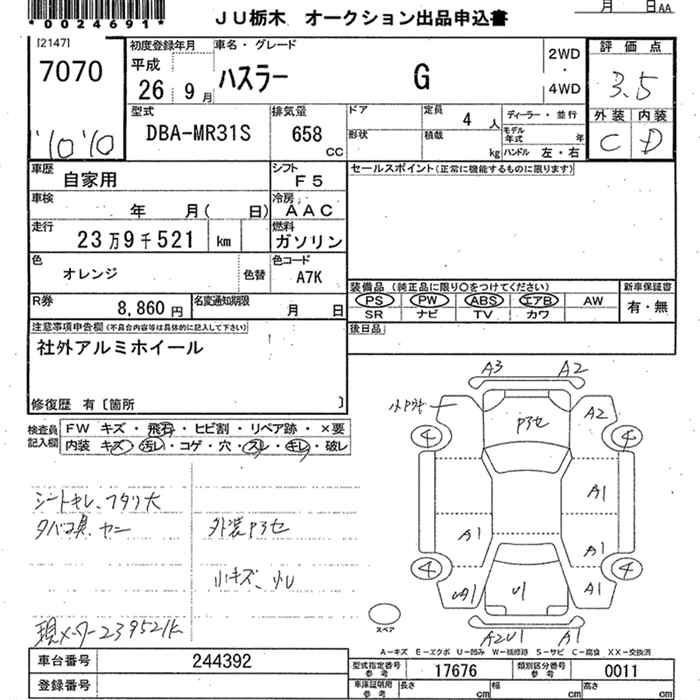 *0024691*
JU栃木 オークション出品申込書
月 日 AA
[2147]
7070
"10'10
初度登録年月
平成
26 9月
車名・グレード
ハスラー G
2WD
・
4WD
評価点
3.5
外装 内装
C D
型式
DBA-MR31S
排気量
658
CC
ドア
形状
定員 4 人
積載 kg
ディーラー・並行
モデル年式 年
ハンドル 左・右
車歴
自家用
シフト
F5
車検
年 月( 日)
冷房
AAC
走行
23万9千521 km
燃料
ガソリン
色
オレンジ
色替
色コード
A7K
R券
8,860円
名変通知期限
月 日
セールスポイント(正常に機能するものに限ります)
装備品 (純正品に限り○をつけてください)
新車保証書
PS PW ABS エアB AW
SR ナビ TV カワ
有・無
後日品
注意事項申告欄(不具合内容等は具体的に記入して下さい)
社外アルミホイール
修復歴 有〔箇所 〕
検査員記入欄
FW キズ・飛石・ヒビ割・リペア跡・×要
内装 キズ・汚れ・コゲ・穴・スレ・キレ・破レ
シートキレ、フタリ大
タバコ臭、ヤニ
外装アラセ
小キズ、凹
現メーター239521k
A3 A2
小アラキ
アラセ
A2
4 4
A1
A1
A1
4 4
UA1
U1
A1
A2U1 A1
スペア
A-キズ E-エクボ U-凹み W-補修跡 S-サビ C-腐食 XX-交換済
車台番号
244392
登録番号
型式指定番号
参考
17676
類別区分番号
参考
0011
車庫証明用
参考
長さ cm
幅 cm
高さ cm